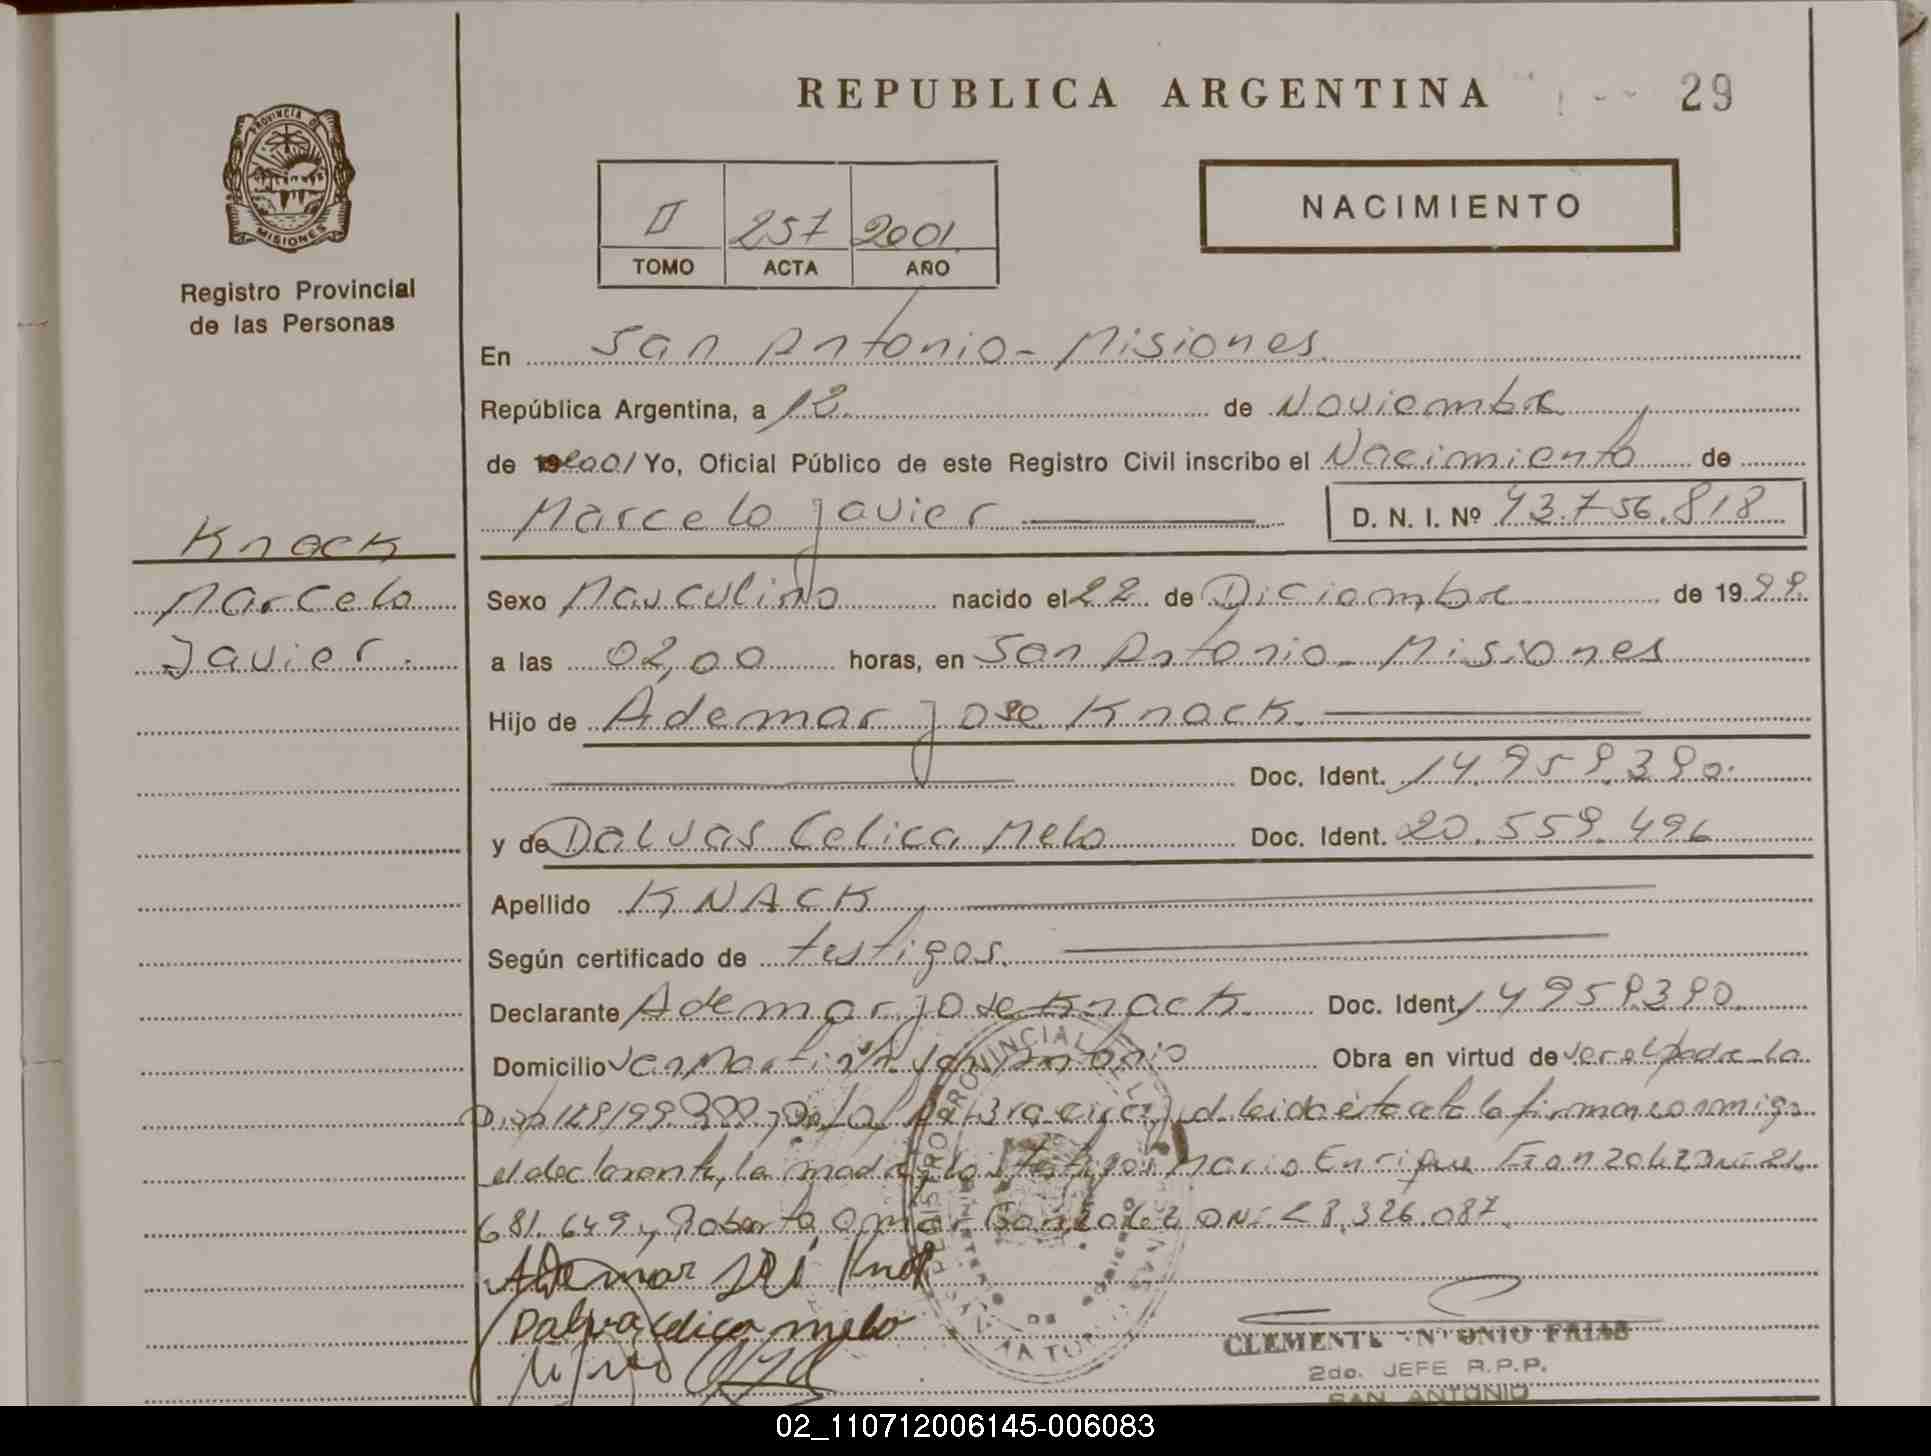 REPUBLICA ARGENTINA
29
PROVINCIA DE
MISIONES
Registro Provincial
de las Personas
II 257 2001
TOMO ACTA AÑO
NACIMIENTO
En San Antonio - Misiones
República Argentina, a 12 de Noviembre
de 2001 Yo, Oficial Público de este Registro Civil inscribo el Nacimiento de
Marcelo Javier D. N. I. Nº 43.756.818
Knack
Marcelo
Javier.
Sexo Masculino nacido el 22 de Diciembre de 1999.
a las 02,00 horas, en San Antonio - Misiones
Hijo de Ademar Jose Knack.
Doc. Ident. 14.959.390.
y de Dalvas Celica Melo Doc. Ident. 20.559.496
Apellido KNACK
Según certificado de testigos.
Declarante Ademar Jose Knack. Doc. Ident. 14959390.
Domicilio San Antonio Obra en virtud de ser el padre - la
leida esta acta la firman conmigo
el declarante, la madre y los testigos Mario Enrique Gonzalez
681.649 y Roberto Omar Gonzalez DNI 28.326.087.
Ademar José Knack
Dalva Celica melo
CLEMENTE ANTONIO FRIAS
2do. JEFE R.P.P.
SAN ANTONIO
02_110712006145-006083